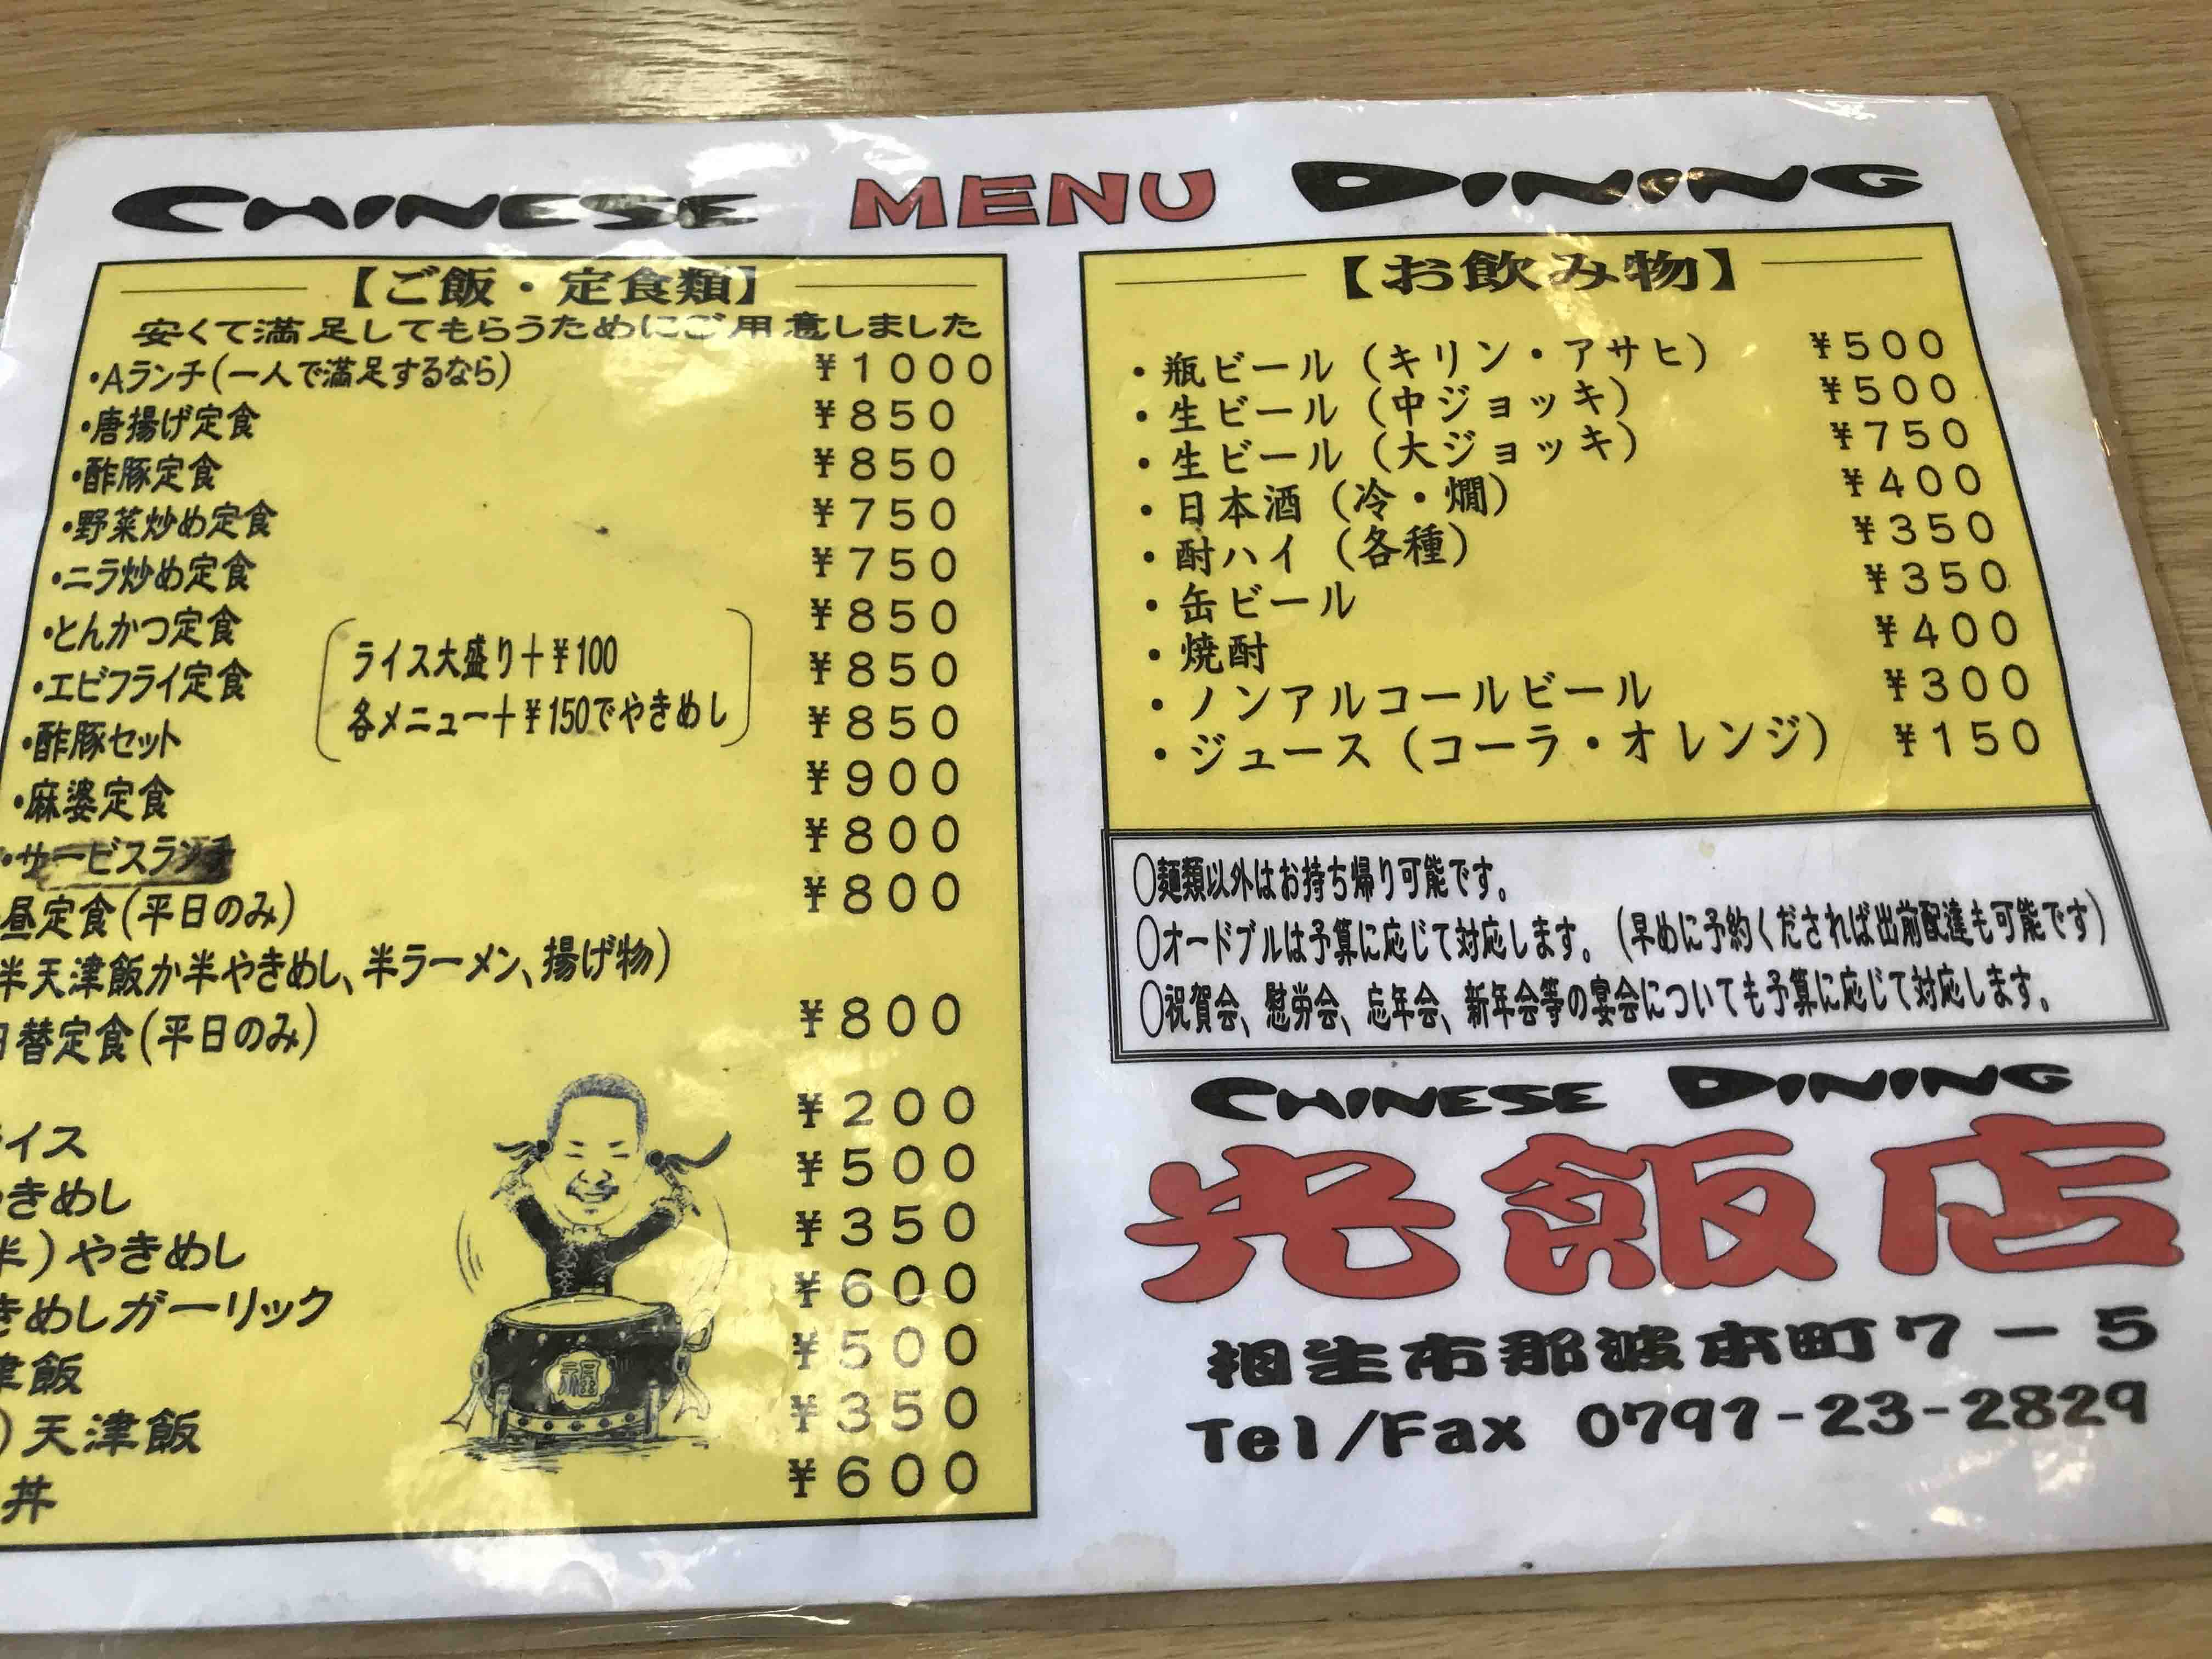 CHINESE MENU DINING
【ご飯・定食類】
安くて満足してもらうためにご用意しました
・Aランチ(一人で満足するなら) ¥1000
・唐揚げ定食 ¥850
・酢豚定食 ¥850
・野菜炒め定食 ¥750
・ニラ炒め定食 ¥750
・とんかつ定食 ¥850
・エビフライ定食 ¥850
・酢豚セット ¥850
・麻婆定食 ¥900
・サービスランチ ¥800
昼定食(平日のみ) ¥800
半天津飯か半やきめし、半ラーメン、揚げ物)
替定食(平日のみ) ¥800
ライス大盛り+¥100
各メニュー+¥150でやきめし
イス ¥200
きめし ¥500
半)やきめし ¥350
きめしガーリック ¥600
津飯 ¥500
)天津飯 ¥350
丼 ¥600
福
【お飲み物】
・瓶ビール(キリン・アサヒ) ¥500
・生ビール(中ジョッキ) ¥500
・生ビール(大ジョッキ) ¥750
・日本酒(冷・燗) ¥400
・酎ハイ(各種) ¥350
・缶ビール ¥350
・焼酎 ¥400
・ノンアルコールビール ¥300
・ジュース(コーラ・オレンジ) ¥150
○麺類以外はお持ち帰り可能です。
○オードブルは予算に応じて対応します。(早めに予約くだされば出前配達も可能です)
○祝賀会、慰労会、忘年会、新年会等の宴会についても予算に応じて対応します。
CHINESE DINING
光飯店
相生市那波本町7-5
Tel/Fax 0791-23-2829